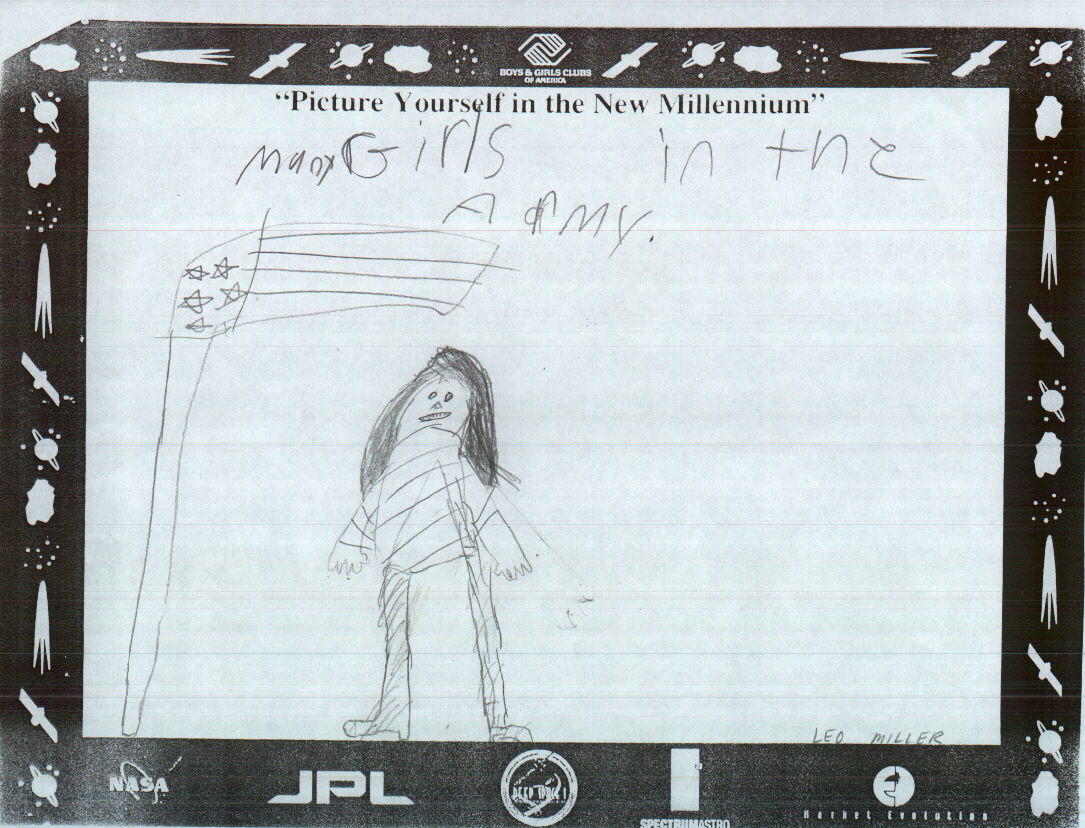 BOYS & GIRLS CLUBS
OF AMERICA
“Picture Yourself in the New Millennium”
Many Girls in the
Army.
LEO MILLER
NASA
JPL
DEEP SPACE 1
SPECTRUMASTRO
Market Evolution